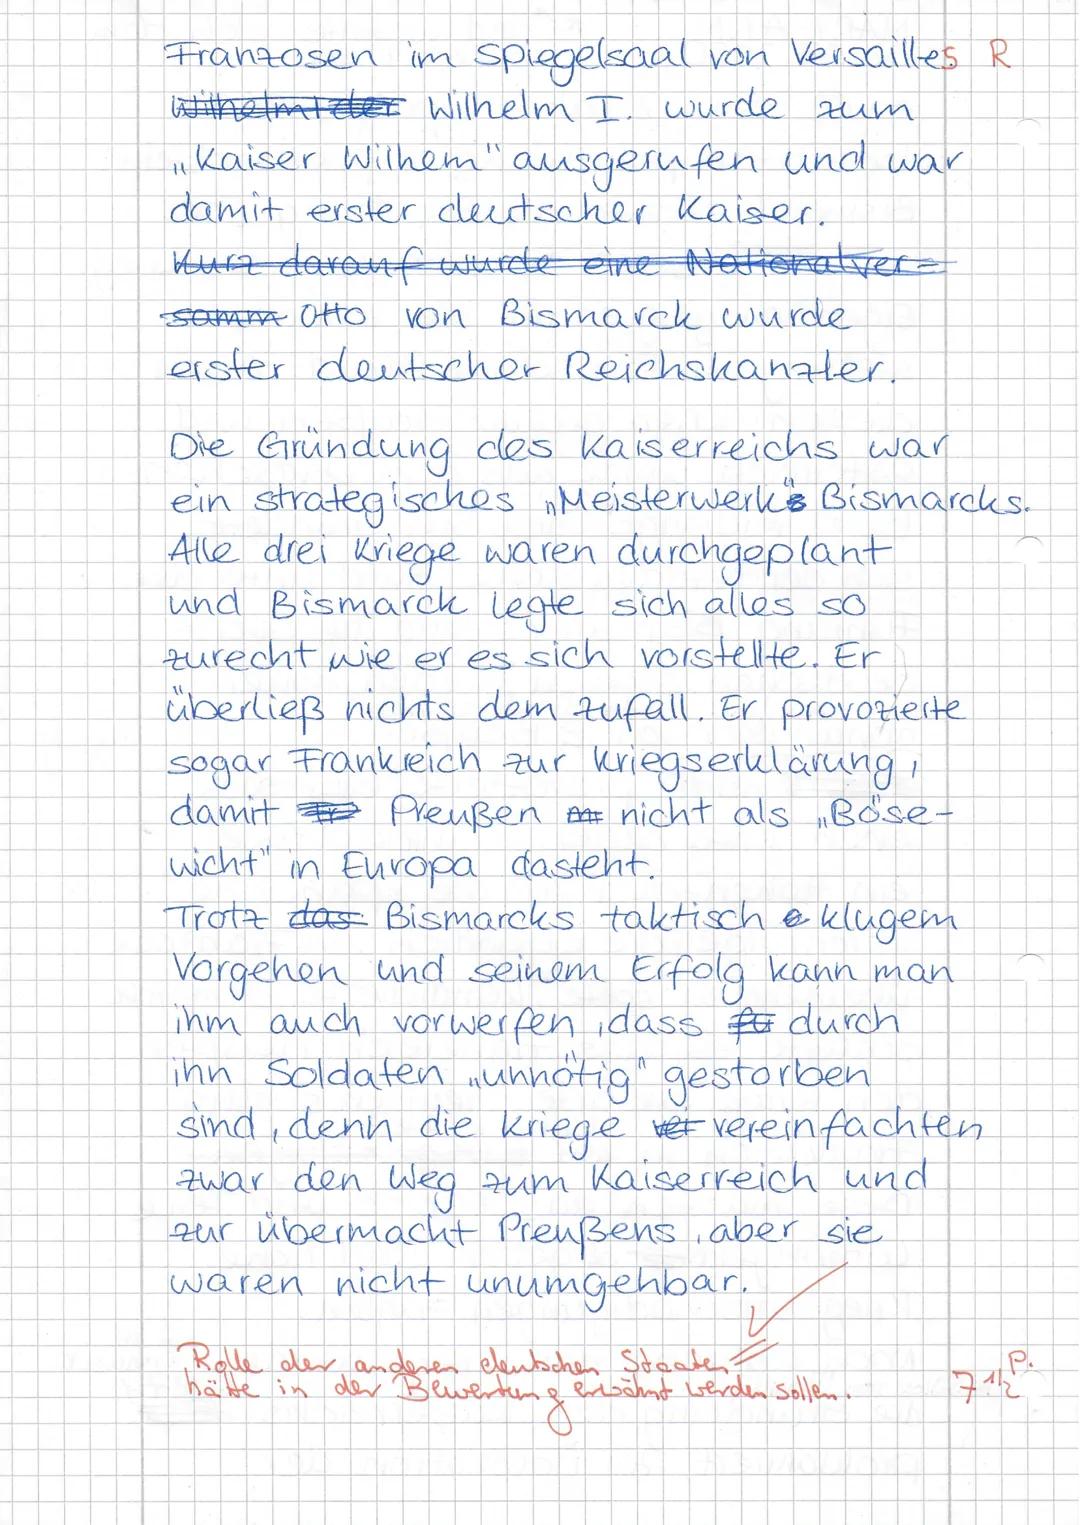 Franzosen im Spiegelsaal von Versailles R
Wilhelm I der Wilhelm I. wurde zum
„Kaiser Wilhem" ausgerufen und war
damit erster deutscher Kaiser.
Kurz darauf wurde eine Nationalver-
samm Otto von Bismarck wurde
erster deutscher Reichskanzler.
Die Gründung des Kaiserreichs war
ein strategisches „Meisterwerk" Bismarcks.
Alle drei Kriege waren durchgeplant
und Bismarck legte sich alles so
zurecht wie er es sich vorstellte. Er
überließ nichts dem Zufall. Er provozierte
sogar Frankreich zur Kriegserklärung,
damit Preußen nicht als „Böse-
wicht" in Europa dasteht.
Trotz das Bismarcks taktisch klugem
Vorgehen und seinem Erfolg kann man
ihm auch vorwerfen, dass durch
ihn Soldaten „unnötig" gestorben
sind, denn die Kriege ver vereinfachten
zwar den Weg zum Kaiserreich und
zur Übermacht Preußens, aber sie
waren nicht unumgehbar.
Rolle der anderen deutschen Staaten
hätte in der Bewertung erwähnt werden sollen.
7 1/2 P.